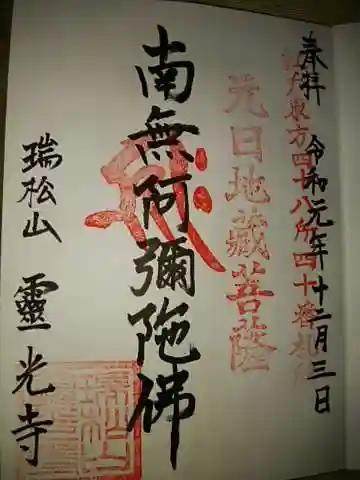 奉拝 令和元年十二月三日
江戸東方四十八所四十番札所
元日地蔵菩薩
南無阿彌陀佛
瑞松山 靈光寺